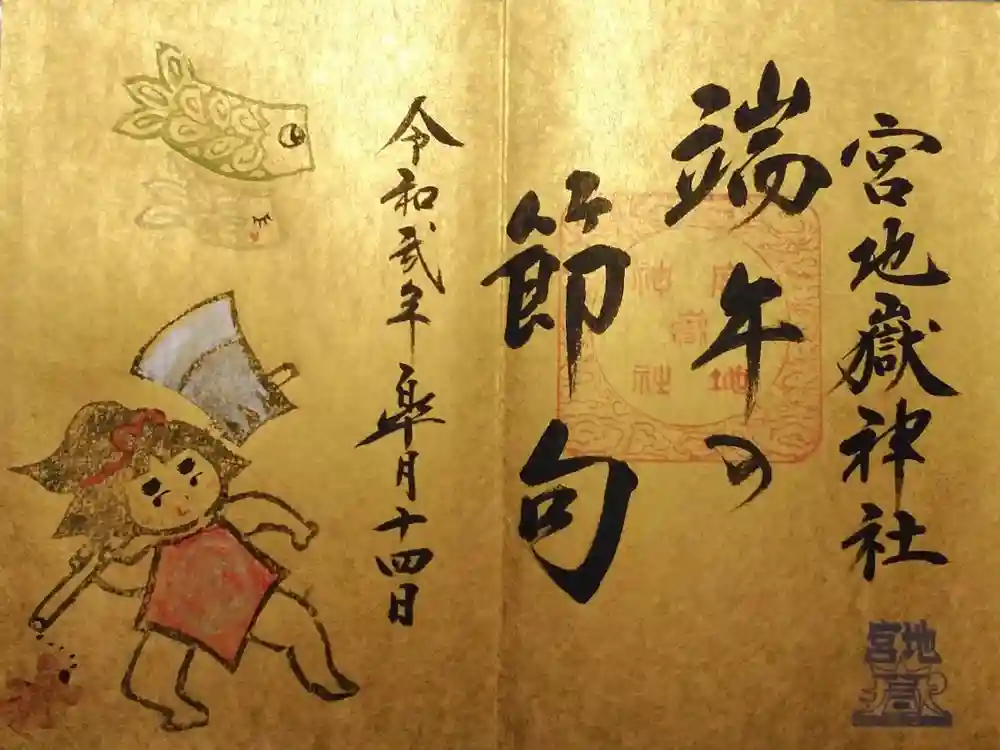 宮地嶽神社
端午の
節句
令和弐年皐月十四日
宮地嶽神社
宮地
嶽